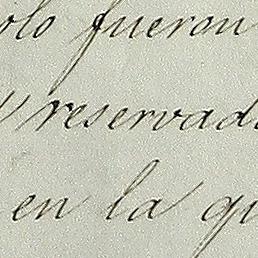 olo fueron
y reservad
en la qu